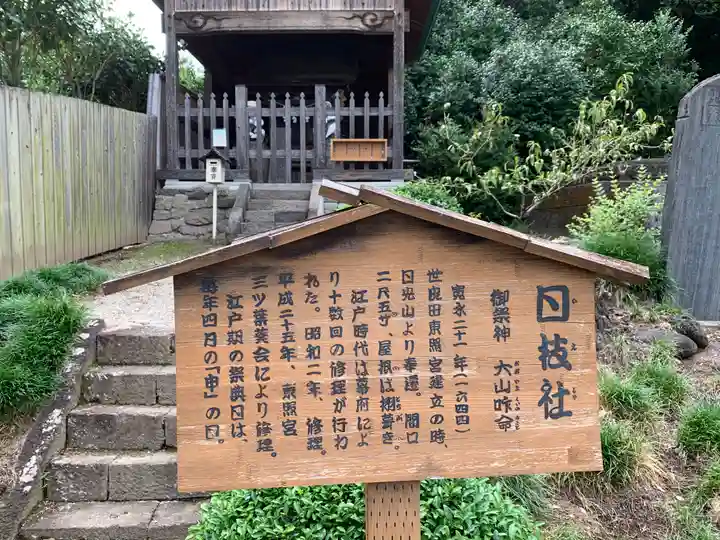 日枝社
御祭神 大山咋命
寛永二十一年(一六四四)
世良田東照宮建立の時、
日光山より奉遷。間口
二尺五寸、屋根は栩葺き
江戸時代は幕府によ
り十数回の修理が行わ
れた。昭和二年、修理。
平成二十五年、東照宮
三ツ葉葵会により修理。
江戸期の祭典日は、
毎年四月の「申」の日。